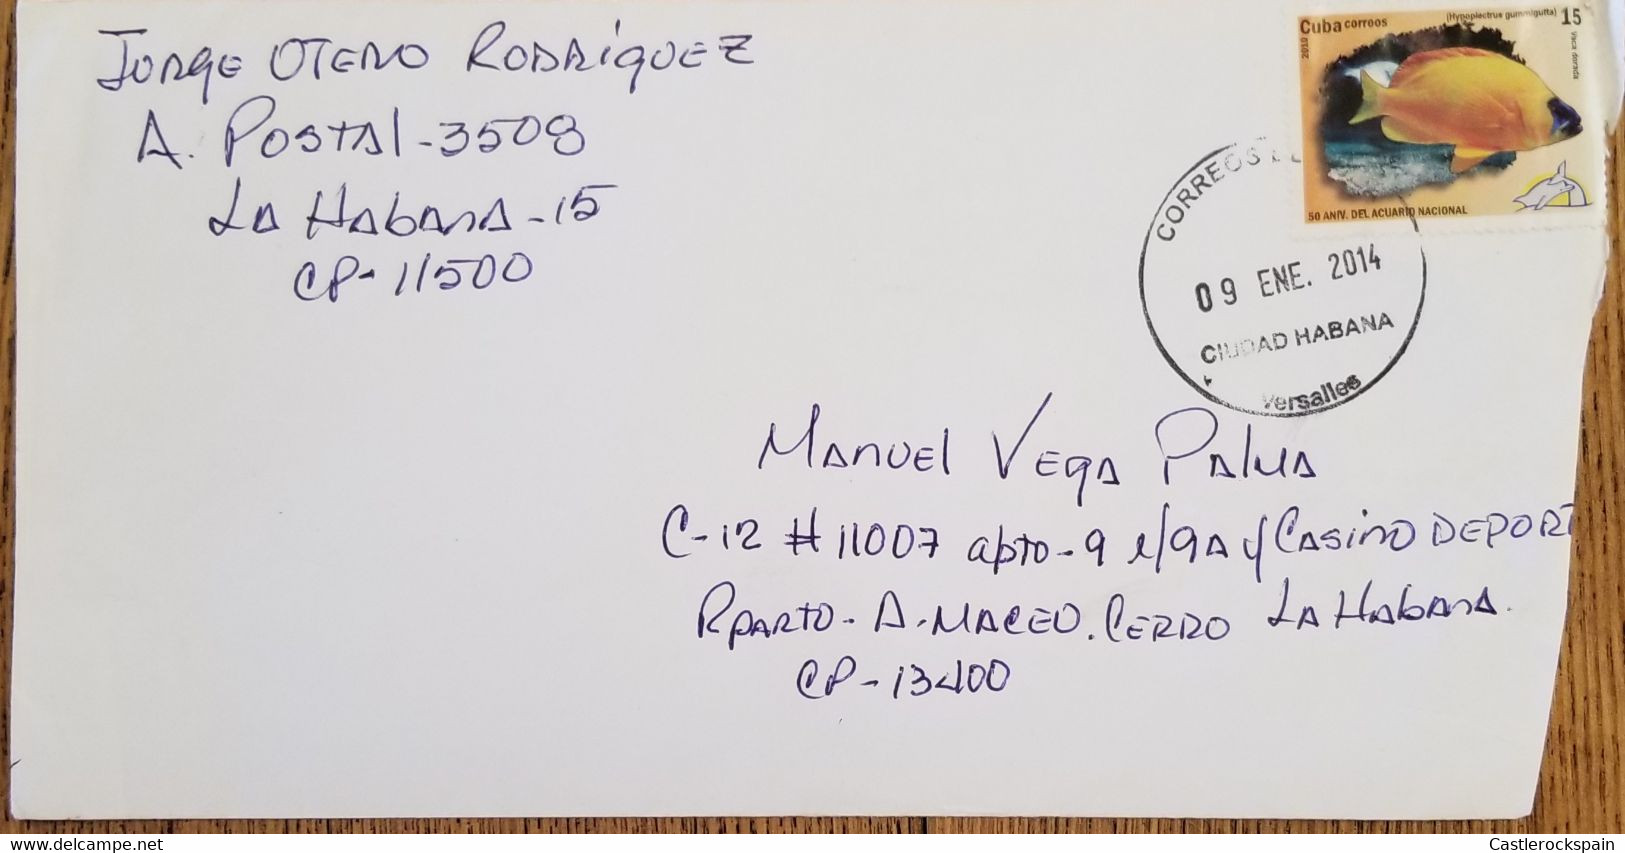 Jorge Otero Rodríguez
A. Postal - 3508
La Habana - 15
CP - 11500
Cuba correos
(Hypoplectrus gummigutta) 15
2010
Vaca dorada
50 ANIV. DEL ACUARIO NACIONAL
CORREOS
09 ENE. 2014
CIUDAD HABANA
Versalles
Manuel Vega Palma
C-12 # 11007 apto-9 e/9A y Casino DEPORT
Rparto - A. MACEO. CERRO La Habana.
CP - 13400
delcampe.net
Castlerockspain